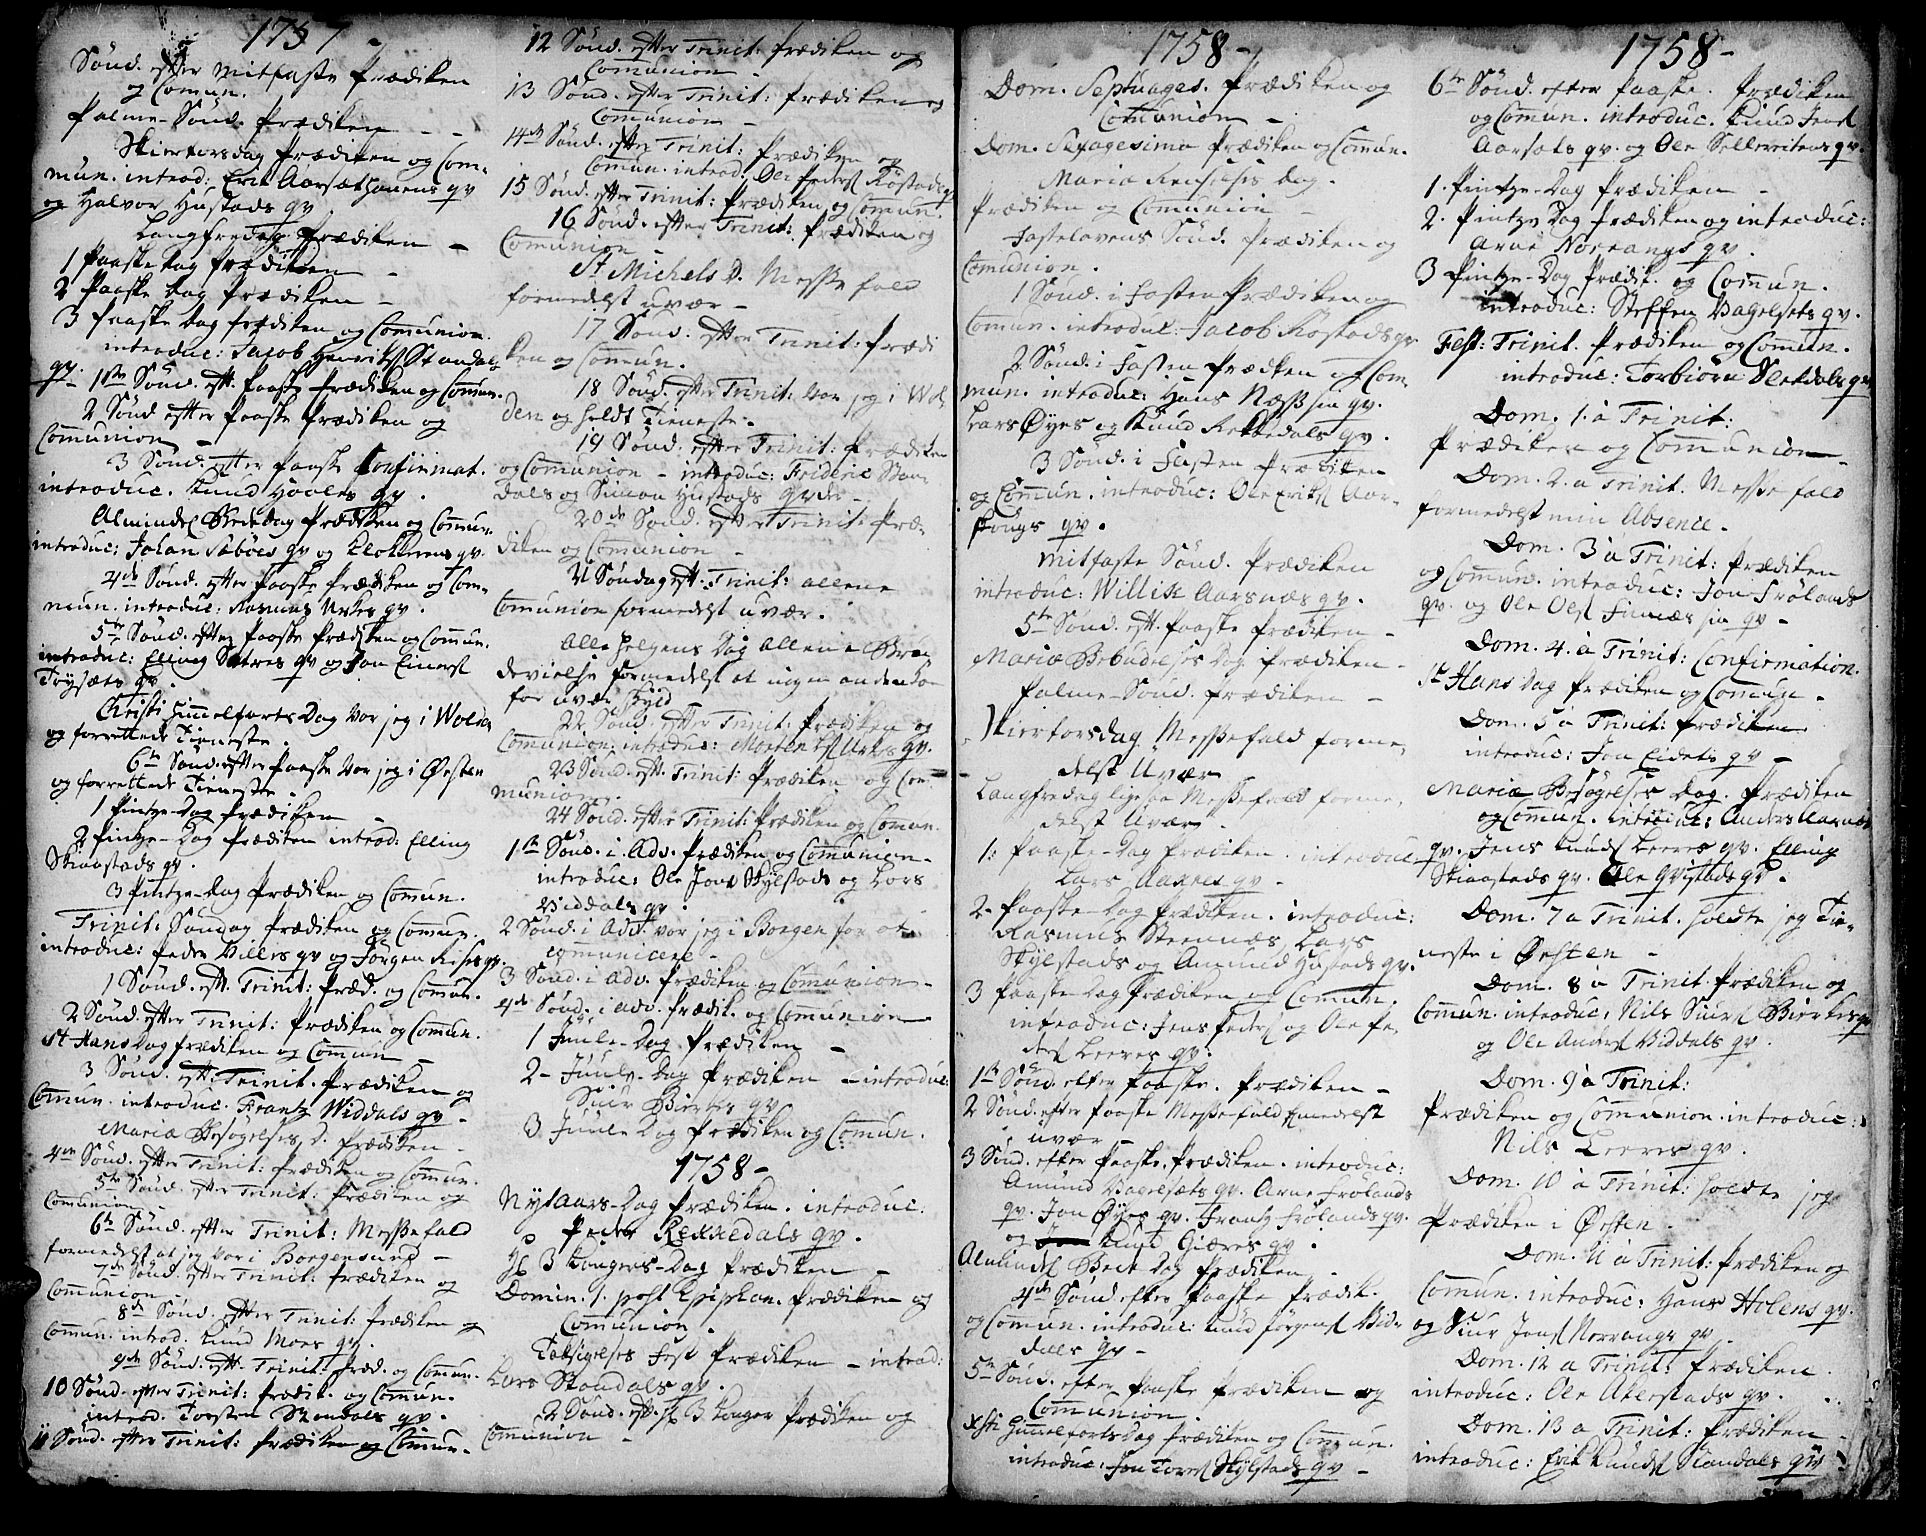 1757 -
Sönd. efter Mitfaste Prædiken
og Comun.
Palme-Sönd. Prædiken - -
Skiertorsdag Prædiken og Com-
mun. introd: Erik Aarsæthanens qv
og Halvor Hustads qv
Langfredag Prædiken -
1 Paaske Dag Prædiken -
2 Paaske Dag Prædiken -
3 Paaske Dag Prædiken og Comunion.
introduc: Jacob Henrichs Standals
qv. 1ste Sönd. eft. Paaske Prædiken og Comun.
2 Sönd efter Paaske Prædiken og
Comunion -
3 Sönd. efter Paaske Confirmat.
introduc. Knud Hovles qv.
Almindel Bededag Prædiken og Comun.
introduc: Johan Sæböes qv og Klokkerens qv.
4de Sönd. efter Paaske Prædiken og Com-
mun. introduc: Rasmus Urkes qv.
5te Sönd. efter Paaske Prædiken og Comun.
introduc: Elling Sætres qv og Jon Einers
Töysæts qv.
Christi Himmelfarts Dag var jeg i Wolden
og forrettede Tieneste.
6te Sönd. efter Paaske var jeg i Örsten
og forrettede Tieneste.
1 Pintze-Dag Prædiken -
2 Pintze-Dag Prædiken introd: Elling
Skaastads qv.
3 Pintze-Dag Prædiken og Comun.
Trinit: Söndag Prædiken og Comun.
introduc: Peder Villies qv og Jörgen Rises qv.
1 Sönd. eft. Trinit: Præd. og Comun.
2 Sönd. efter Trinit: Prædiken og Comun.
St Hans Dag Prædiken og Comun -
3 Sönd. eft. Trinit. Prædiken og
Comun. introduc. Frantz Widdals qv -
Mariæ Besögelses D. Prædiken -
4de Sönd. efter Trinit: Prædiken og Comun.
5te Sönd. efter Trinit: Prædiken og
Comunion -
6te Sönd. efter Trinit: Messefald
formedelst at jeg var i Borgensund -
7de Sönd. efter Trinit: Prædiken og
Comunion -
8de Sönd. efter Trinit: Prædiken og
Comun. introd. Knud Moes qv.
9de Sönd. eft. Trinit: Præd. og Comun.
10 Sönd. efter Trinit: Prædik. og Comun.
introd. Torsten Standals qv.
11 Sönd. efter Trinit: Prædiken og Comun.
12 Sönd. efter Trinit: Prædiken og
Comunion -
13 Sönd. efter Trinit: Prædiken og
Comunion -
14de Sönd. efter Trinit: Prædiken og
Comun. introd. Ole Peders Röstads qv
15 Sönd. efter Trinit: Prædiken og Comun.
16 Sönd. efter Trinit: Prædiken og
Comunion -
St Michels D. Messe fald
formedelst uvær -
17 Sönd. efter Trinit: Prædi
ken og Comun.
18 Sönd. efter Trinit: var jeg i Wol-
den og holdt Tieneste.
19 Sönd. efter Trinit: Prædiken
og Comunion - introduc: Frideric Stan-
dals og Simon Hustads qvdes -
20de Sönd. efter Trinit: Præ-
diken og Comunion -
21 Söndag eft. Trinit: allene
Comunion formedelst uvær.
Alle Helgens Dag allene Bræ
devielse formedelst at ingen anden kom
for uvær skyld
22 Sönd. efter Trinit: Prædiken og
Comunion: introduc: Morten Urkes qv.
23 Sönd. eft. Trinit: Prædiken og Com-
munion.
24 Sönd. efter Trinit: Prædiken og Comun.
1te Sönd. i Adv. Prædiken og Comunion -
introduc: Ole Jons Skylstads og Lars
Viddals qv.
2 Sönd. i Adv. var jeg i Borgen for at
comunicere -
3 Sönd. i Adv. Prædiken og Comunion -
4de Sönd. i adv. Prædik. og Comunion
1 Juule-Dag Prædiken -
2 - Juule-Dag Prædiken - introduc:
Siur Bierkes qv.
3 Juule Dag Prædiken og Comun.
1758 -
Nytaars-Dag Prædiken. introduc:
Peder Rekkedals qv.
H. 3 Kongers-Dag Prædiken -
Domin. 1. post Epiphan. Prædiken og
Comunion.
Taksigelses Fest Prædiken - introd:
Lars Standals qv.
2 Sönd. eft. H. 3 Konger Prædiken og
Comunion -
1758 -
Dom. Septuages. Prædiken og
Comunion -
Dom. Sexagesima Prædiken og Comun.
Mariæ Renselses Dag.
Prædiken og Comunion -
Fastelavens Sönd. Prædiken og
Comunion.
1 Sönd. i Fasten Prædiken og
Comun. introduc: Jacob Röstads qv
2 Sönd. i Fasten Prædiken og Com-
mun. introduc: Hans Næss sin qv.
Lars Öyes og Knud Rekkedals qv.
3 Sönd. i Fasten Prædiken
og Comun. introduc: Ole Eriks Aar-
skougs qv.
Mitfaste Sönd. Prædiken
introduc: Willik Aarsnæs qv.
5te Sönd. eft. Paaske Prædiken -
Mariæ Bebudelses Dag Prædiken -
Palme-Sönd. Prædiken -
Skiertorsdag Messefald forme-
delst Uvær -
Langfredag ligesaa Messefald forme-
delst Uvær.
1: Paaske-Dag Prædiken. introduc
Lars Aakres qv -
2 - Paaske-Dag Prædiken. introduc:
Rasmus Steennæs, Lars
Skylstads og Amund Hustads qv.
3 Paaske-Dag Prædiken og Comun.
introduc: Jens Peders og Ole Pe-
ders Leeres qv.
1te Sönd. efter Paaske. Prædiken -
2 Sönd. efter Paaske Messefald formedelst
uvær
3 Sönd. efter Paaske. Prædiken. introduc:
Amund Vagelsæts qv. Arne Frölands
qv. Jon Öyes qv. Frantz Frölands qv.
og Knud Giæres qv.
Almindel Bede Dag Prædiken -
4de Sönd. efter Paaske Prædik.
og Comun. introduc: Knud Jörgens Vid-
dals qv -
5te Sönd. efter Paaske Prædiken og
Comunion.
Xsti Himmelfarts Dag Prædiken og Comun.
introduc: Jon Tores Skylstads qv -
1758 -
6te Sönd. efter Paaske. Prædiken
og Comun. introduc. Knud Jons
Aarsæts qv. og Ole Sellevritens qv.
1. Pintze-Dag Prædiken -
2. Pintze Dag Prædiken og introduc:
Arne Norrangs qv.
3 Pintze-Dag Prædik. og Comun.
introduc: Steffen Vagelsets qv.
Fest: Trinit. Prædiken og Comun.
introduc: Torbiörn Sletdals qv
Dom. 1. a Trinit:
Prædiken og Comunion -
Dom. 2. a Trinit. Messe fald
formedelst min Absence.
Dom. 3 a Trinit: Prædiken
og Comun. introduc: Jon Frölands
qv. og Ole Ols Finnæs sin qv -
Dom. 4. a Trinit: Confirmation.
St Hans Dag Prædiken og Comun.
Dom. 5 a Trinit: Prædiken
introduc: Jon Eidets qv -
Mariæ Besögelses Dag. Prædiken
og Comun. introduc: Anders Aarnæs
qv. Jens Knuds Leeres qv. Elling
Skaastads qv. Ole Qvistads qv.
Dom. 7 a Trinit. holdte jeg Tie-
neste i Örsten -
Dom. 8 a Trinit. Prædiken og
Comun. introduc: Nils Siurs Bierkes qv
og Ole Anders Viddals qv.
Dom. 9 a Trinit:
Prædiken og Comunion. introduc:
Nils Leeres qv.
Dom. 10 a Trinit: holdte jeg
Prædiken i Örsten.
Dom. 11 a Trinit: Prædiken og
Comun. introduc: Hans Holens qv.
og Siur Jons Norrangs qv.
Dom. 12 a Trinit: Prædiken.
introduc: Ole Akerstads qv.
Dom. 13 a Trinit: Prædiken -
introduc: Erik Knuds Standals qv